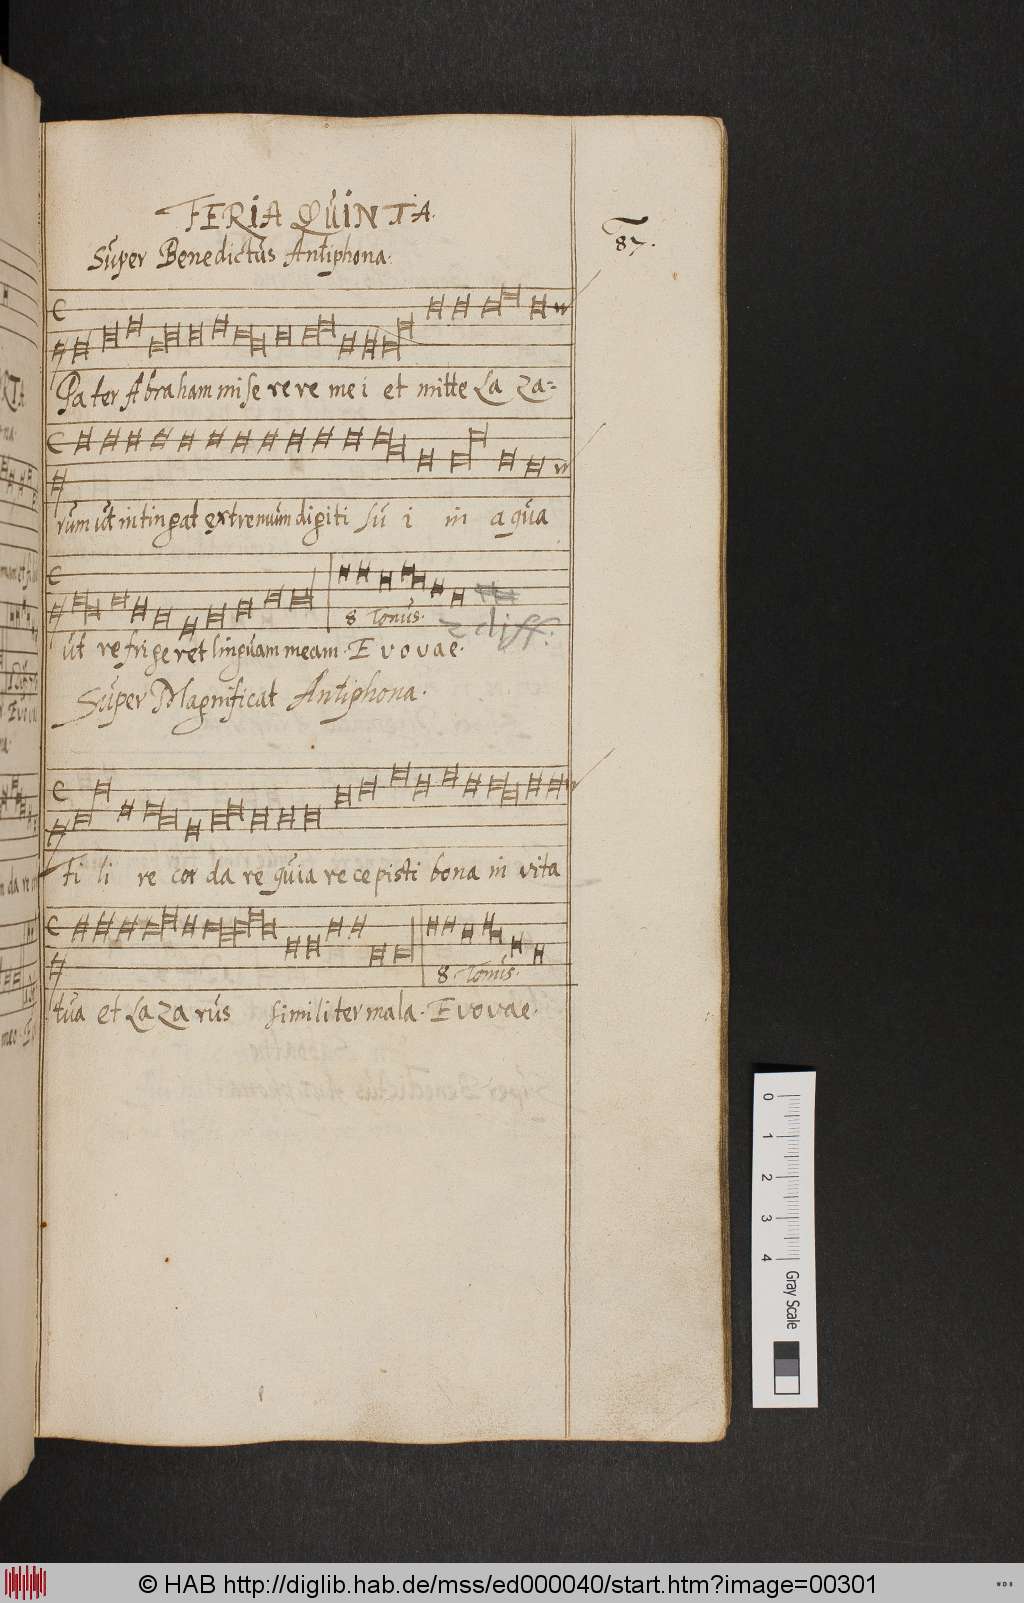 FERIA QUINTA.
87.
Super Benedictus Antiphona.
Pa ter Abraham mi se re re me i et mitte La za=
rum ut intingat extremum digiti su i in aqua
8 Tonus.
2 diff.
ut refrigeret linguam meam. E v o v a e.
Super Magnificat Antiphona.
fi li re cor da re quia recepisti bona in vita
8 Tonus.
tua et La za rus similiter mala. E v o v a e.
0 1 2 3 4 Gray Scale
© HAB http://diglib.hab.de/mss/ed000040/start.htm?image=00301